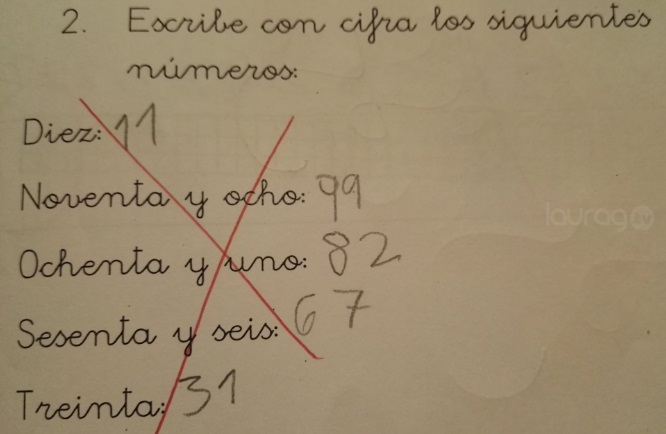 2. Escribe con cifra los siguientes
números:
Diez: 11
Noventa y ocho: 99
Ochenta y uno: 82
Sesenta y seis: 67
Treinta: 31
laurag